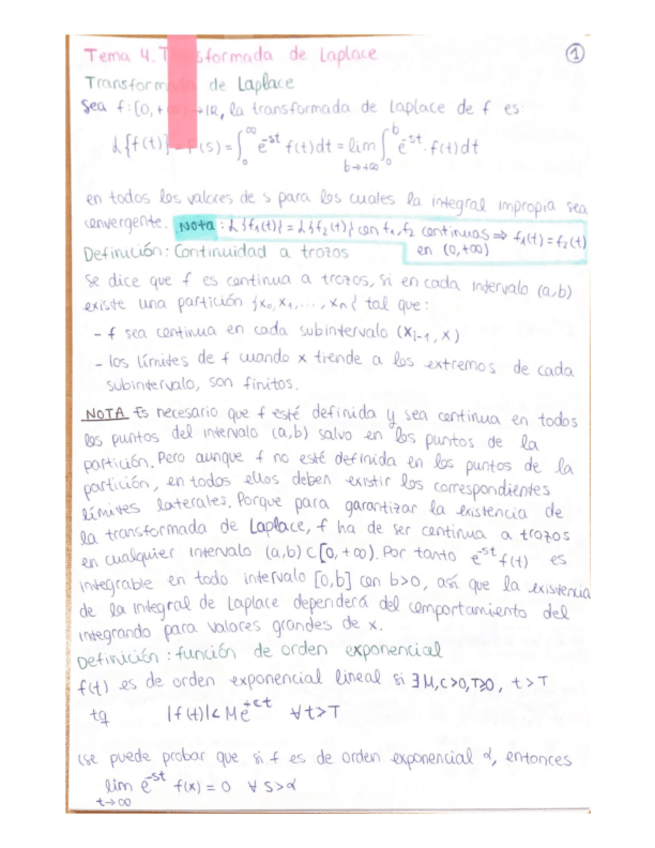 Tema 4. Transformada de Laplace
①
Transformada de Laplace
Sea f:[0,+∞)→ℝ, la transformada de Laplace de f es:
ℒ{f(t)} = F(s) = ∫₀^∞ e^-st f(t)dt = lim b→+∞ ∫₀^b e^-st · f(t)dt
en todos los valores de s para los cuales la integral impropia sea
convergente. Nota: ℒ{f₁(t)} = ℒ{f₂(t)} con f₁, f₂ continuas ⇒ f₁(t) = f₂(t)
en (0,+∞)
Definición: Continuidad a trozos
Se dice que f es continua a trozos, si en cada intervalo (a,b)
existe una partición {x₀, x₁, ..., xₙ} tal que:
- f sea continua en cada subintervalo (xᵢ₋₁, x)
- los límites de f cuando x tiende a los extremos de cada
subintervalo, son finitos.
NOTA Es necesario que f esté definida y sea continua en todos
los puntos del intervalo (a,b) salvo en los puntos de la
partición. Pero aunque f no esté definida en los puntos de la
partición, en todos ellos deben existir los correspondientes
límites laterales. Porque para garantizar la existencia de
la transformada de Laplace, f ha de ser continua a trozos
en cualquier intervalo (a,b) ⊂ [0,+∞). Por tanto e^-st f(t) es
integrable en todo intervalo [0,b] con b>0, así que la existencia
de la integral de Laplace dependerá del comportamiento del
integrando para valores grandes de x.
Definición: función de orden exponencial
f(t) es de orden exponencial lineal si ∃ M, C>0, T≥0, t>T
tq |f(t)| < M e^+ct ∀t>T
(se puede probar que si f es de orden exponencial α, entonces
lim t→∞ e^-st f(x) = 0 ∀ s>α